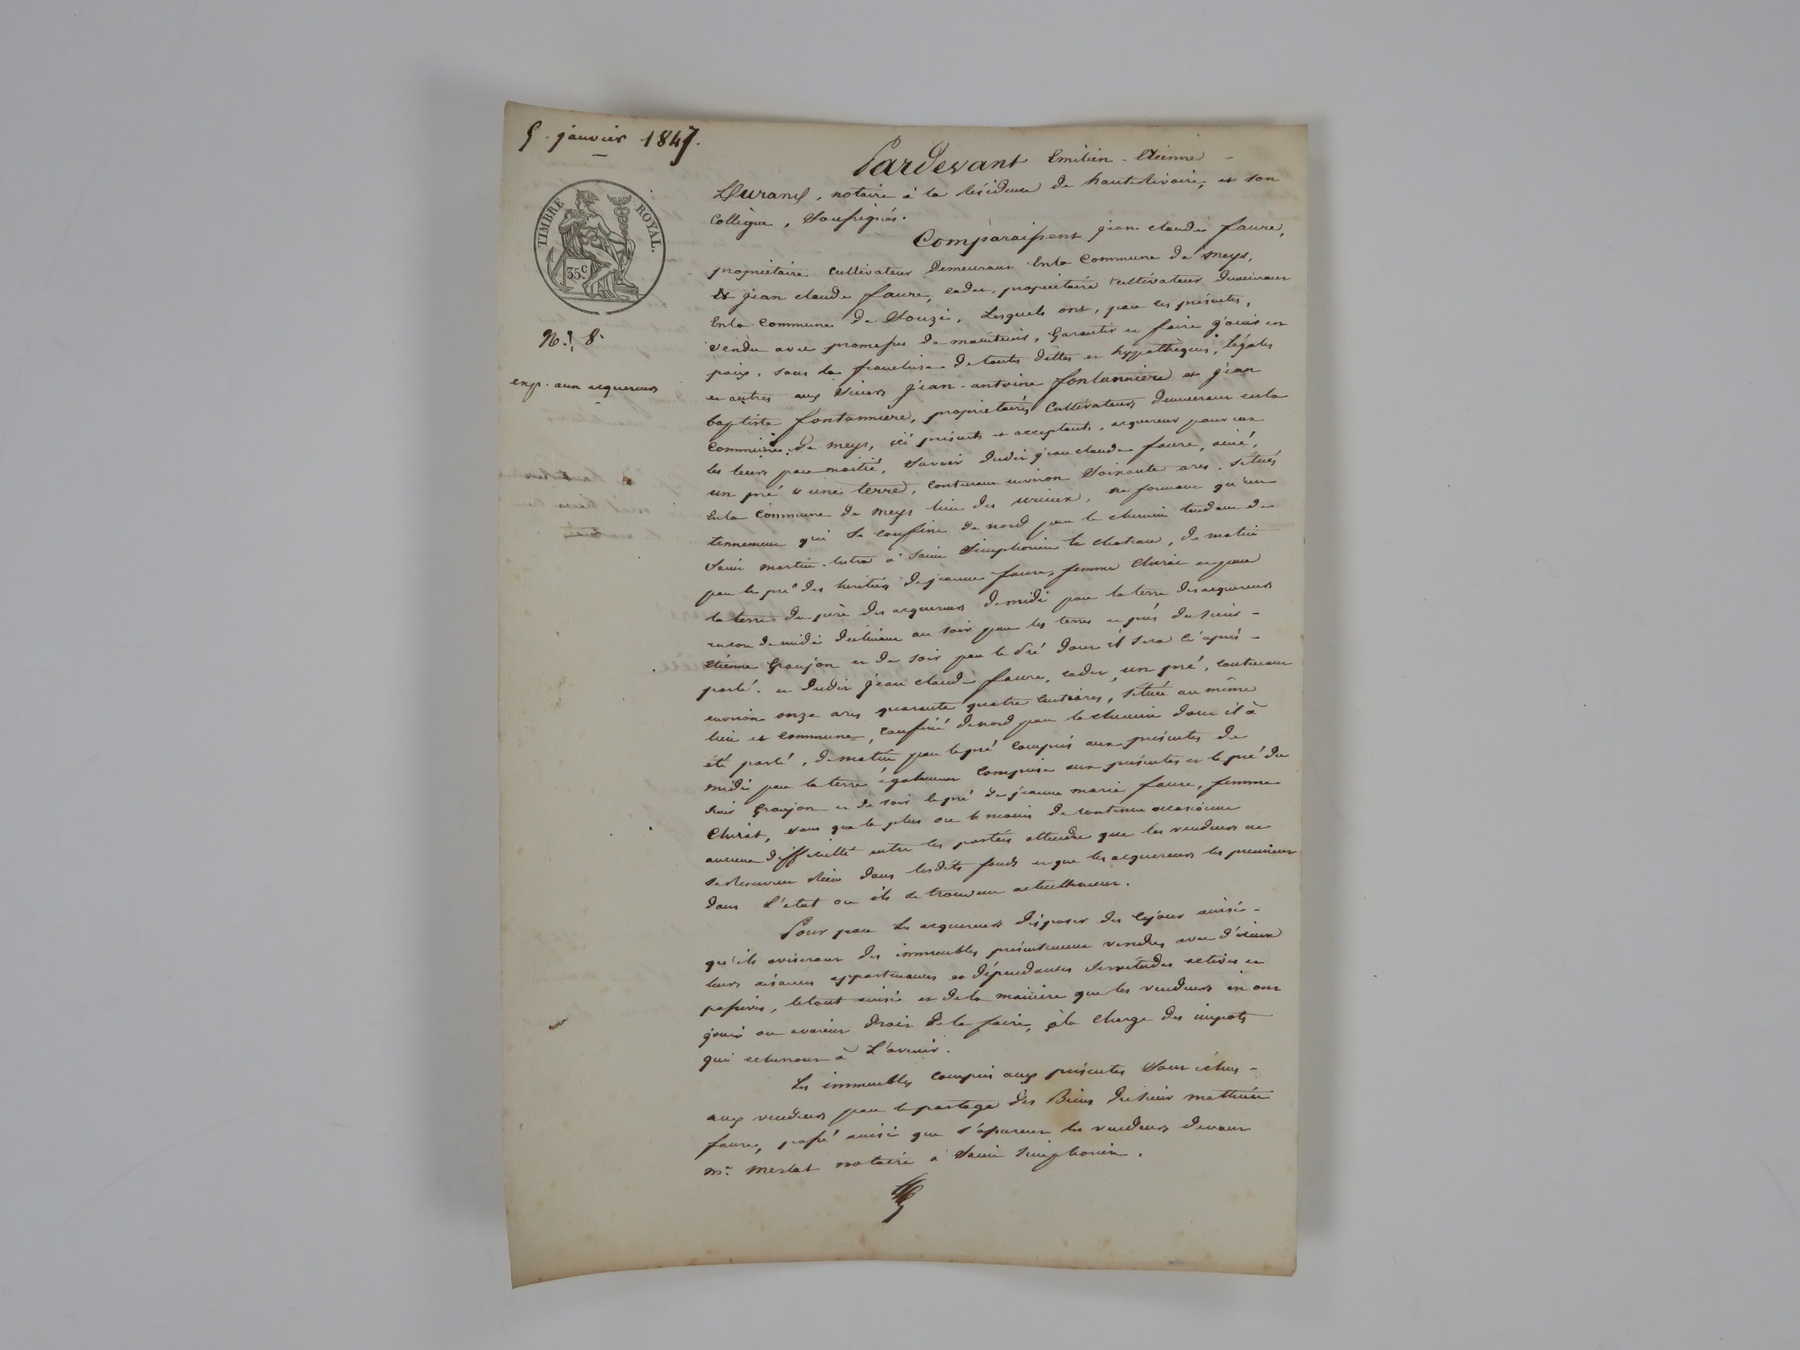 5. janvier 1847.
TIMBRE ROYAL.
35 c.
N.° 8.
exp. aux acquereurs
Pardevant Emilien-Etienne
Durand, notaire à la résidence de hauterivoire, et son
Collègue, Soussignés.
Comparaissent jean claude faure,
propriétaire cultivateur demeurant Enla Commune de meys,
Et jean claude faure, cadet, propriétaire cultivateur demeurant
Enla Commune de Souzi, Lesquels ont, par ces présentes,
vendu avec promesses de maintenir, garantir et faire jouir en
paix, sous la franchise de toutes dêttes et hypothèques, légales
et autres aux Sieurs jean-antoine fontannière et jean
baptiste fontannière, propriétaires Cultivateurs demeurant enla
Commune de meys, ici présents et acceptants, acquereurs pour eux
les leurs par moitié, Savoir dudit jean claude faure, ainé,
un pré & une terre, contenant environ Soixante ares, situés
Enla Commune de meys lieu des, ne formant qu'un
tennement qui se confine de nord par le chemin tendant de
Saint martin-lestra à Saint Simphorien le chateau, de matin
par le pré des héritiers de jeanne faure, femme Chirat et par
la terre du père des acquereurs de midi par la terre des acquereurs
encore de midi déclinant au soir par les terres et prés du sieur
etienne Groujon et de soir par le Pré dont il sera ci après
parlé. et dudit jean claude faure, cadet, un pré, contenant
environ onze ares quarante quatre centiares, situé au même
lieu et commune, confiné de nord par le chemin dont il à
été parlé, de matin par le pré compris aux présentes de
midi par la terre également comprise aux présentes et le pré du
sieur Groujon et de soir le pré de jeanne marie faure, femme
Chirat, sans que le plus ou le moins de contenue occasionne
aucune difficulté entre les parties attendu que les vendeurs ne
se réservent Rien dans lesdits fonds et que les acquereurs les prennent
dans l'état ou ils se trouvent actuellement.
Pour par les acquereurs disposer dès cejour ainsi
qu'ils aviseront des immeubles présentement vendus avec
leurs aisances appartenances et dépendances Servitudes actives et
passives, letout ainsi et dela manière que les vendeurs en ont
joui ou avaient droit de le faire, àla charge des impots
qui echerront à l'avenir.
Les immeubles compris aux présentes Sont échus
aux vendeurs par le partage des Biens du sieur mathieu
faure, passé ainsi que l'assurent les vendeurs devant
m.e merlat notaire à Saint Simphorien.